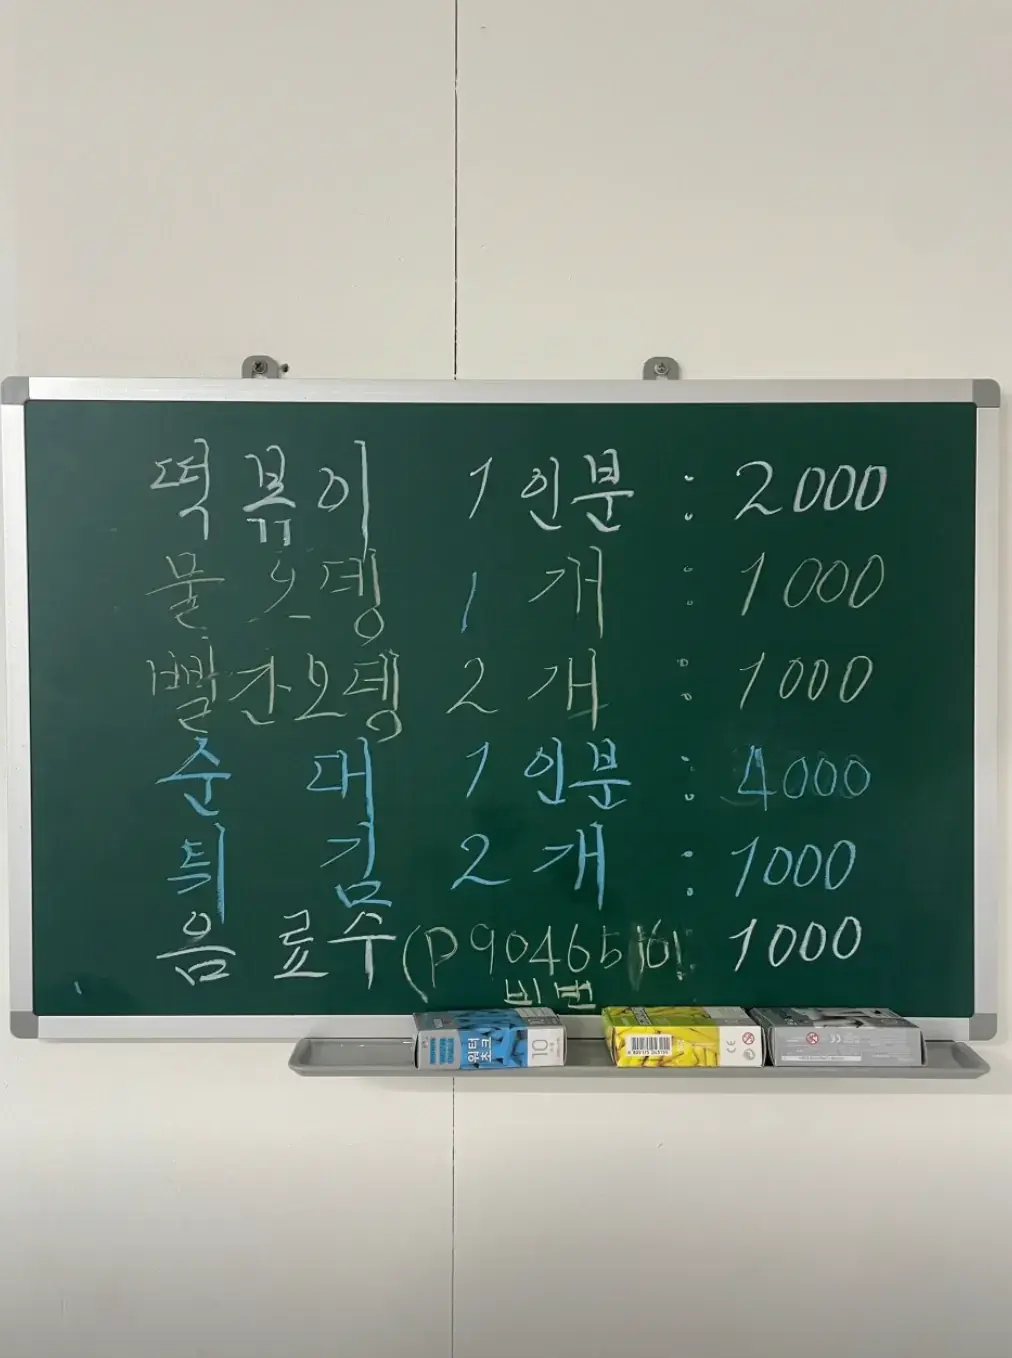 떡볶이 1인분 : 2000
물오뎅 1개 : 1000
빨간오뎅 2개 : 1000
순대 1인분 : 4000
튀김 2개 : 1000
음료수 1000
워터
초크
10
CE